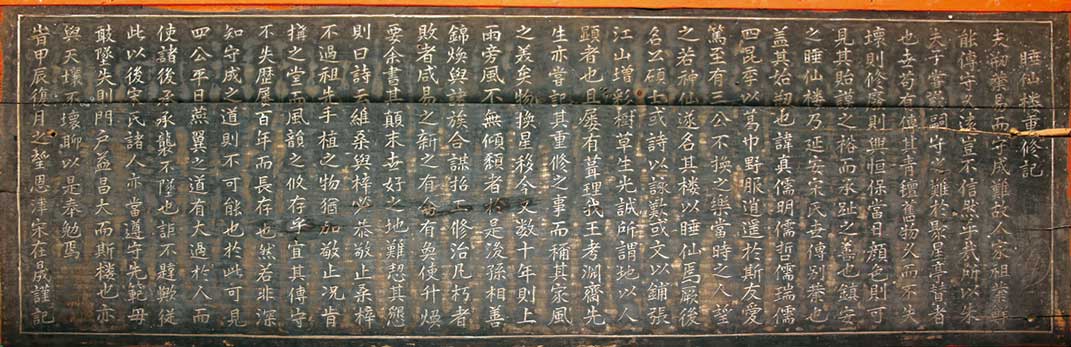 睡仙樓重修記
夫刱業易而守成難故人家祖業鮮
能傳守久遠豈不信然乎我所以朱
夫子嘗識嗣守之難於聚星亭昔者
也玄苟有傳其青氊舊物久而不失
壞則修廢則興恒保當日顔色則可
見其貽謨之裕而承趾之善也鎮安
之睡仙楼乃延安宋氏世傳別業也
盖其始刱也諱眞儒明儒哲儒瑞儒
四昆季以葛巾野服逍遙於斯友愛
篤至有三公不換之樂當時之人望
之若神仙遂名其楼以睡仙焉厥後
名公碩士或詩以詠歎或文以鋪張
江山增彩樹草生光誠所謂地以人
顯者也且屢有葺理我王考渊齋先
生亦嘗記其重修之事而稱其家風
之美矣物換星移今又数十年則上
雨旁風不無傾頹者於是後孫相善
錦煥與諸族合謀招工修治凡朽者
敗者咸易之新之有侖有奐使升煥
要余書其顛末玄好之地難恝其懇
則曰詩云維桑與梓必恭敬止桑梓
不過祖先手植之物猶加敬止况肯
構之堂而風韻之攸存乎宜其傳守
不失歷屢百年而長存也然若非深
知守成之道則不可能也於此可見
四公平日燕翼之道有大過於人而
使諸後承承襲不墜也詎不韙歟從
此以後宋氏諸人亦當遵守先範毋
敢墜失則門戶益昌大而斯樓也亦
與天壤不壞聊以是奉勉焉
旹甲辰復月之𣅀恩津宋在晟謹記